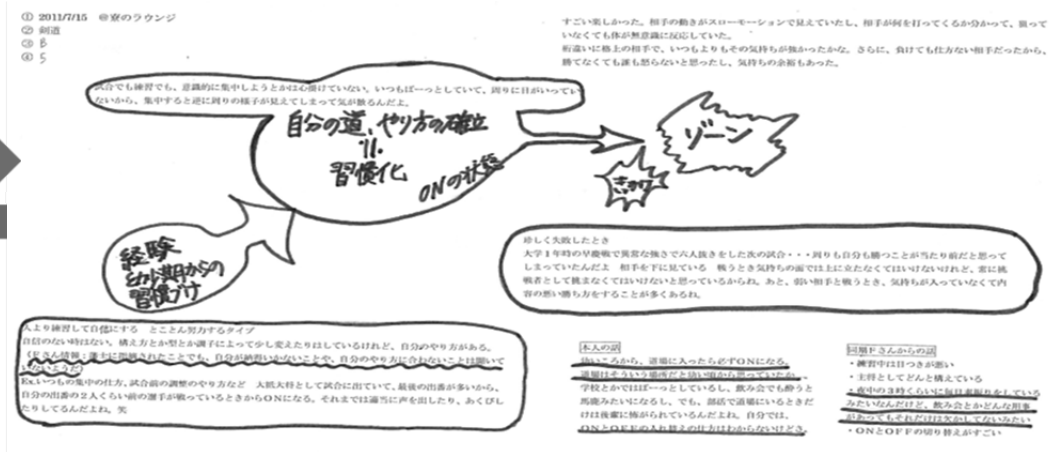 ① 2011/7/15　＠寮のラウンジ
② 剣道
③ B
④ 5
すごい楽しかった。相手の動きがスローモーションで見えていたし、相手が何を打ってくるか分かって、狙って
いなくても体が無意識に反応していた。
桁違いに格上の相手で、いつもよりもその気持ちが強かったかな。さらに、負けても仕方ない相手だったから、
勝てなくても誰も怒らないと思ったし、気持ちの余裕もあった。
試合でも練習でも、意識的に集中しようとかは心掛けていない。いつもぼーっとしていて、周りに目がいってい
ないから、集中すると逆に周りの様子が見えてしまって気が散るんだよ。
自分の道、やり方の確立
〃
習慣化
ONの状態
ゾーン
きっかけ
経験
幼少期からの
習慣づけ
珍しく失敗したとき
大学１年時の早慶戦で異常な強さで六人抜きをした次の試合・・・周りも自分も勝つことが当たり前だと思って
しまっていたんだよ　相手を下に見ている　戦うとき気持ちの面では上に立たなくてはいけないけれど、常に挑
戦者として挑まなくてはいけないと思っているからね。あと、弱い相手と戦うとき、気持ちが入っていなくて内
容の悪い勝ち方をすることが多くあるね。
人より練習して自信にする　とことん努力するタイプ
自信のない時はない。構え方とか型とか調子によって少し変えたりはしているけれど、自分のやり方がある。
（Fさん情報：誰かに指摘されたことでも、自分が納得いかないことや、自分のやり方に合わないことは聞いて
いないようだ）
Ex.いつもの集中の仕方、試合前の調整のやり方など　大抵大将として試合に出ていて、最後の出番が多いから、
自分の出番の２人くらい前の選手が戦っているときからONになる。それまでは適当に声を出したり、あくびし
たりしてるんだよね。笑
本人の話
幼いころから、道場に入ったら必ずONになる。
道場はそういう場所だと幼い頃から思っていたか
学校とかではぼーっとしているし、飲み会でも酔うと
馬鹿みたいになるし、でも、部活で道場にいるときだ
けは後輩に怖がられているんだよね。自分では、
ONとOFFの入れ替えの仕方はわからないけどさ。
同期Fさんからの話
・練習中は目つきが悪い
・主将としてどんと構えている
・夜中の３時くらいに毎日素振りをしている
みたいなんだけど、飲み会とかどんな用事
があってもそれだけは欠かしてないみたい
・ONとOFFの切り替えがすごい